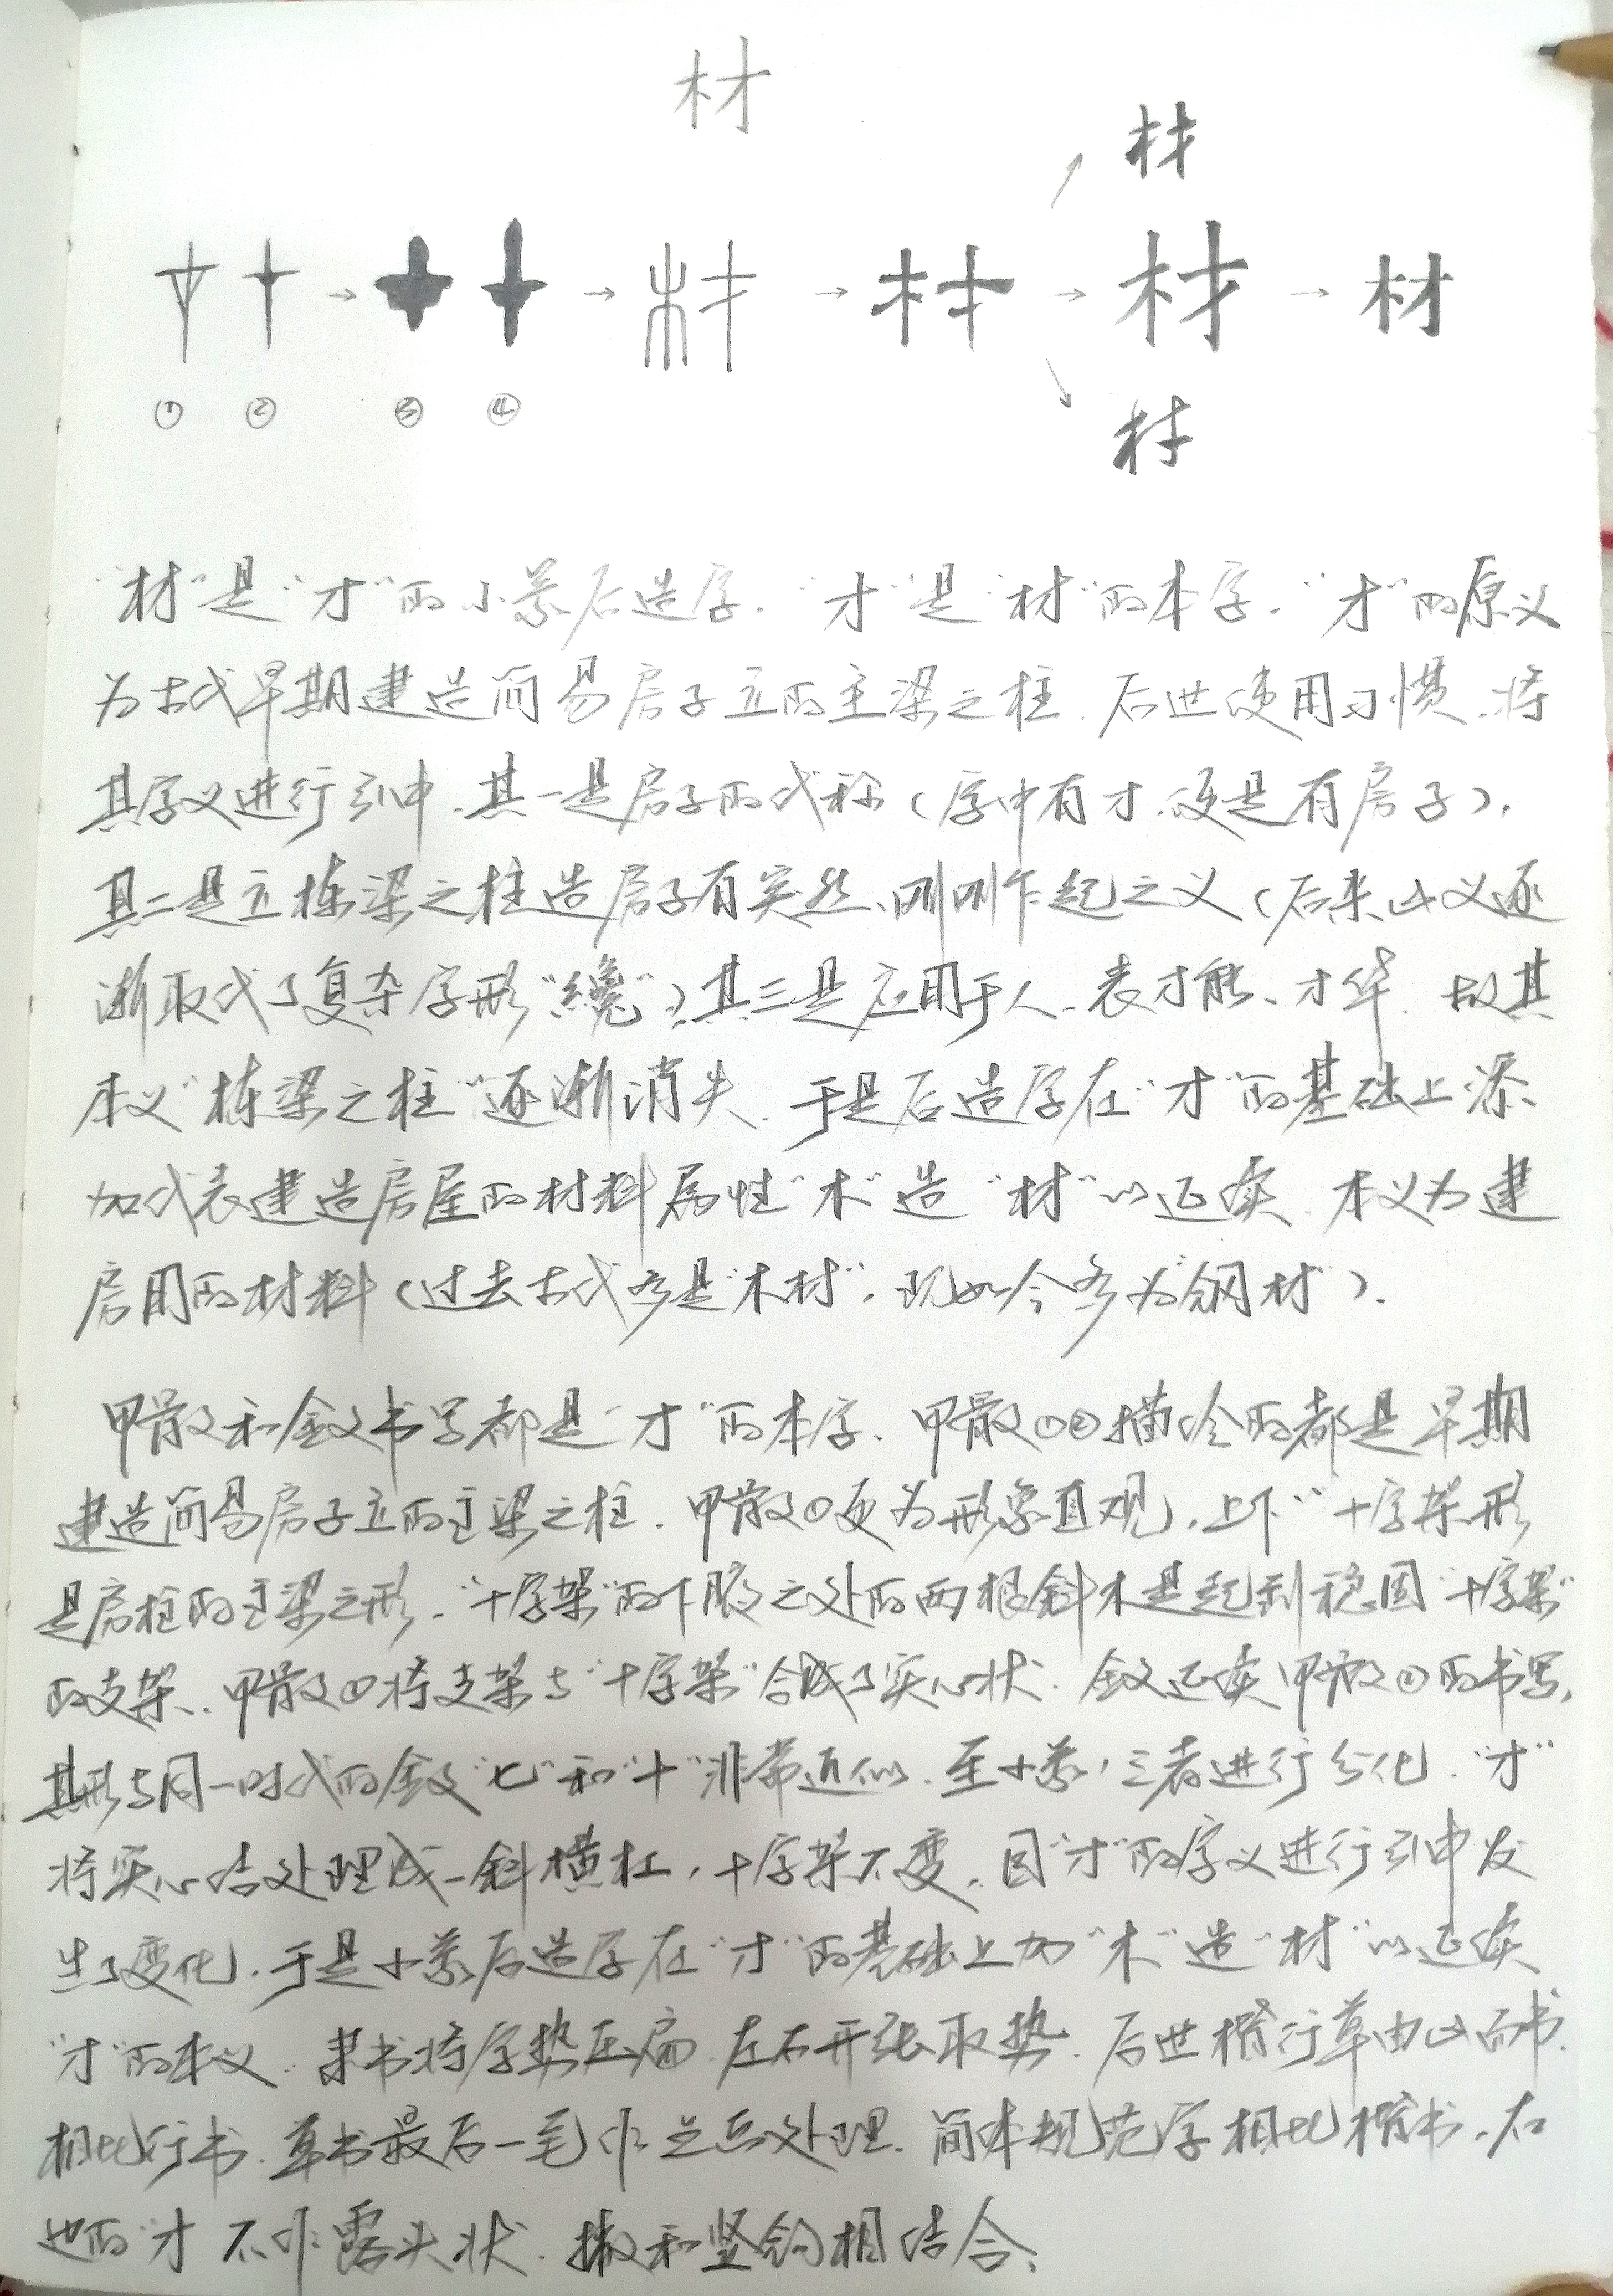 材
材
→ → 材 → 材 → 材 → 材
① ② ③ ④
材
“材”是“才”的小篆后造字。“才”是“材”的本字。“才”的原义
为古代早期建造简易房子立的主梁之柱。后世使用习惯,将
其字义进行引申。其一是房子的代称(字中有才,便是有房子)。
其二是立栋梁之柱造房子有突然、刚刚乍起之义(后来此义逐
渐取代了复杂字形“纔”)。其三是应用于人、表才能、才华。故其
本义“栋梁之柱”逐渐消失。于是后造字在“才”的基础上添
加代表建造房屋的材料属性“木”造“材”以延续。本义为建
房用的材料(过去古代多是“木材”,现如今多为“钢材”)。
甲骨文和金文书写都是“才”的本字。甲骨文①②描绘的都是早期
建造简易房子立的主梁之柱。甲骨文①更为形象直观,上下“十字架形
是房柱的主梁之形。“十字架”的下腋之处的两根斜木是起到稳固“十字架”
的支架。甲骨文②将支架与“十字架”合成了实心状。金文延续甲骨文②的书写,
其形与同一时代的金文“七”和“十”非常近似。至小篆,三者进行分化。“才”
将实心结处理成一斜横杠,十字架不变。因“才”的字义进行引申发
生了变化,于是小篆后造字在“才”的基础上加“木”造“材”以延续
“才”的本义。隶书将字势压扁,左右开张取势。后世楷行草由此而书。
相比行书,草书最后一笔作竖点处理。简体规范字相比楷书,右
边的“才”不作露头状,撇和竖钩相结合。